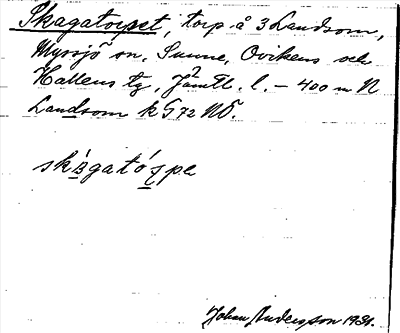 Skagatorpet, torp å 3 Landsom,
Myssjö sn, Sunne, Ovikens och
Hallens tg, Jämtl. l. – 400 m N
Landsom k G 72 NÖ.
Johan Andersson 1931.